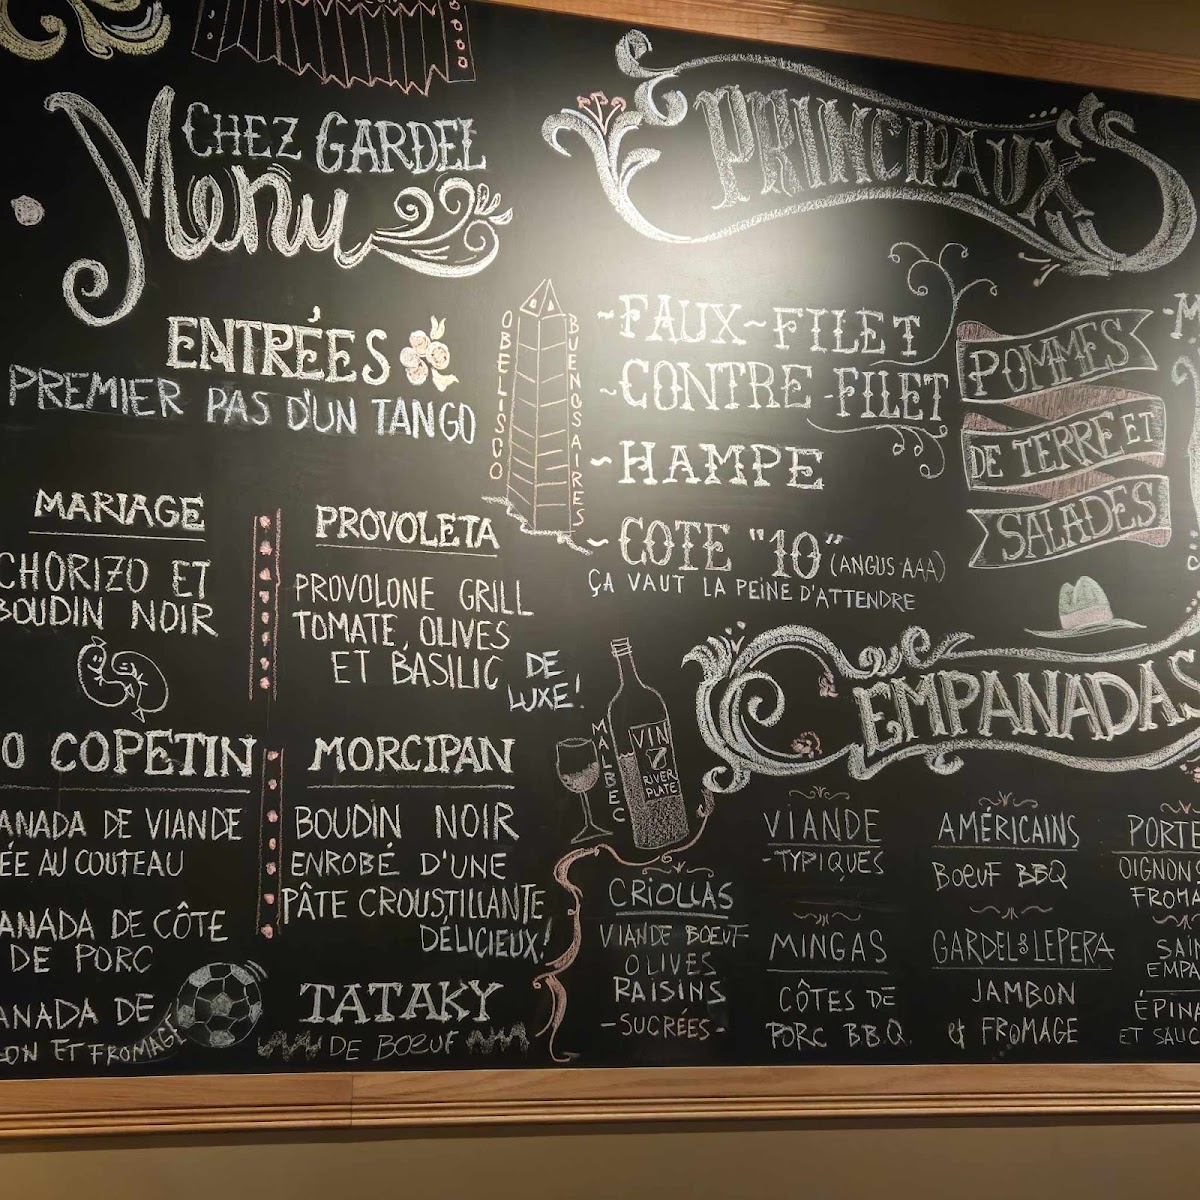 CHEZ GARDEL
Menu
ENTRÉES
PREMIER PAS D'UN TANGO
MARIAGE
CHORIZO ET
BOUDIN NOIR
O COPETIN
ANADA DE VIANDE
ÉE AU COUTEAU
ANADA DE CÔTE
DE PORC
ANADA DE
LON ET FROMAGE
PROVOLETA
PROVOLONE GRILL
TOMATE, OLIVES
ET BASILIC
DE
LUXE!
MORCIPAN
BOUDIN NOIR
ENROBÉ D'UNE
PÂTE CROUSTILLANTE
DÉLICIEUX!
TATAKY
DE BOEUF
OBELISCO
BUENOS AIRES
PRINCIPAUX
~FAUX~FILET
~CONTRE-FILET
~HAMPE
~COTE "10" (ANGUS AAA)
ÇA VAUT LA PEINE D'ATTENDRE
POMMES
DE TERRE ET
SALADES
-M
MALBEC
VIN
7
RIVER
PLATE
EMPANADAS
CRIOLLAS
VIANDE BOEUF
OLIVES
RAISINS
-SUCRÉES-
VIANDE
-TYPIQUES
MINGAS
CÔTES DE
PORC B.B.Q.
AMÉRICAINS
BOEUF BBQ
GARDEL & LEPERA
JAMBON
et FROMAGE
PORTE
OIGNONS
FROMA
SAI
EMPA
ÉPINA
ET SALIC